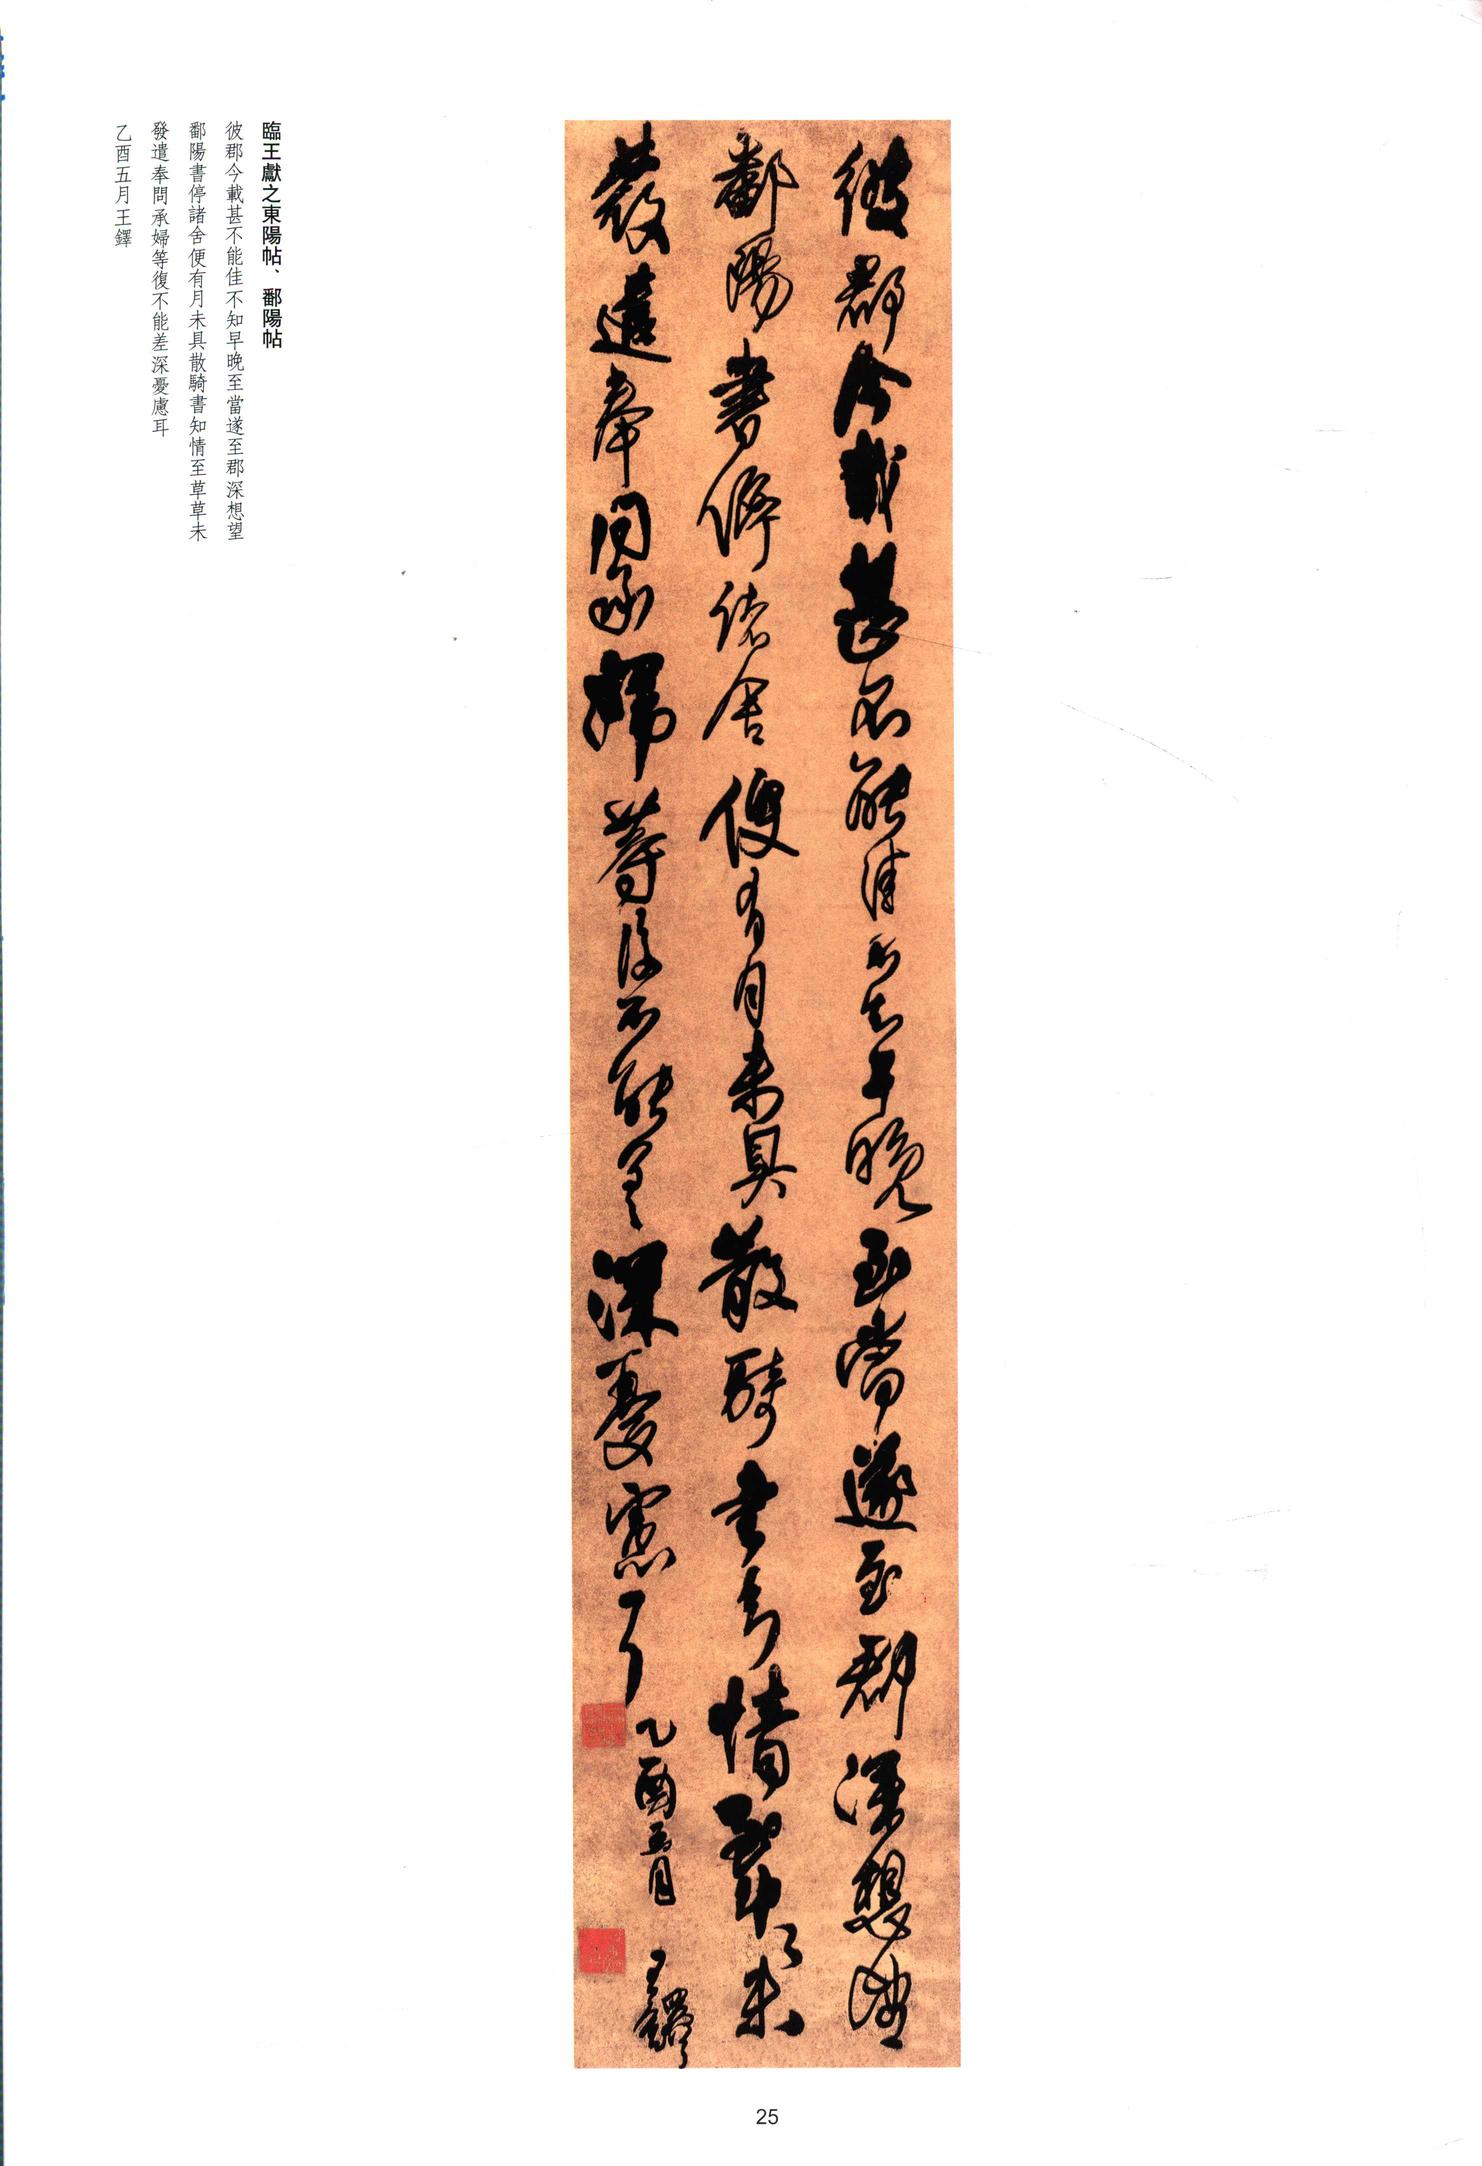 彼郡今載甚不能佳不知早晚至當遂至郡深想望
鄱陽書停諸舍便有月未具散騎書知情至草草未
發遣奉問承婦等復不能差深憂慮耳
乙酉五月
王鐸
臨王獻之東陽帖、鄱陽帖
彼郡今載甚不能佳不知早晚至當遂至郡深想望
鄱陽書停諸舍便有月未具散騎書知情至草草未
發遣奉問承婦等復不能差深憂慮耳
乙酉五月王鐸
25